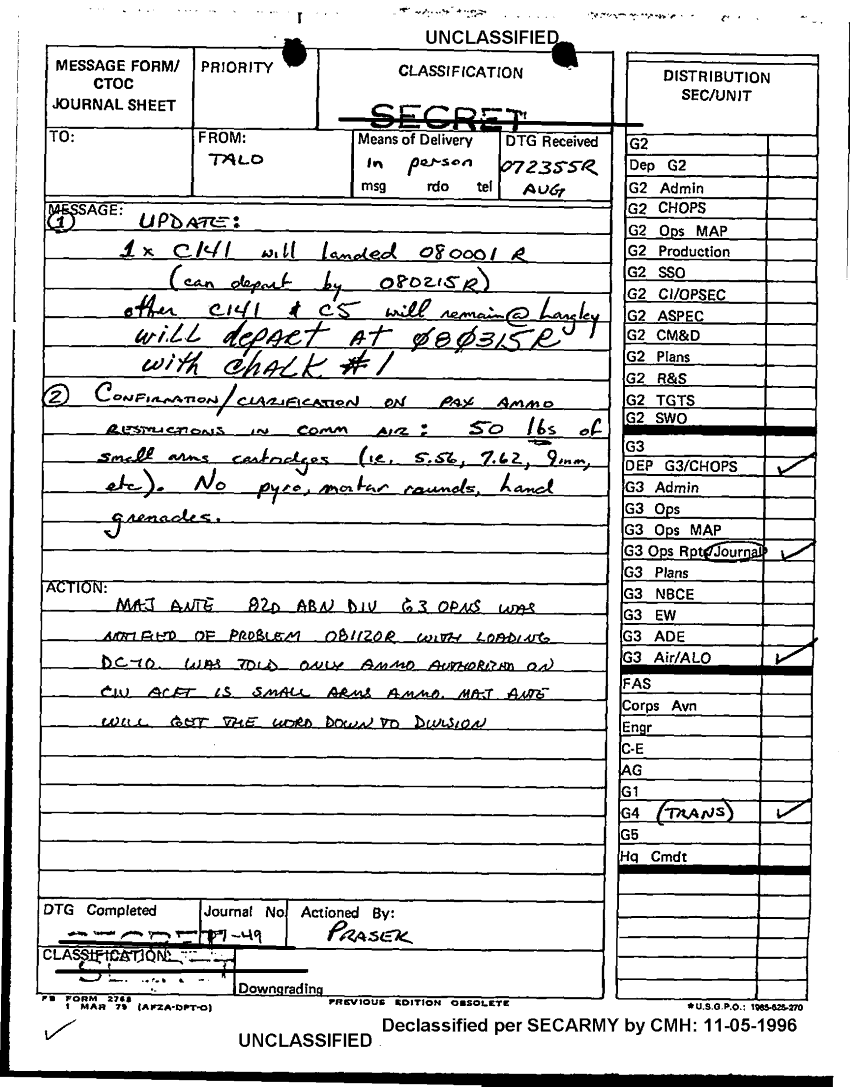 UNCLASSIFIED
MESSAGE FORM/
CTOC
JOURNAL SHEET
PRIORITY
CLASSIFICATION
SECRET
TO:
FROM:
TALO
Means of Delivery
in person
msg rdo tel
DTG Received
072355R
AUG
MESSAGE:
① UPDATE:
1 x C141 will landed 080001 R
(can depart by 080215R)
other C141 & C5 will remain @ Langley
will depart AT Ø8Ø315R
with CHALK #1
② CONFIRMATION/CLARIFICATION ON PAX AMMO
RESTRICTIONS IN COMM AIR: 50 lbs of
small arms cartridges (ie. 5.56, 7.62, 9mm,
etc). No pyro, mortar rounds, hand
grenades.
ACTION:
MAJ ANTE 82D ABN DIV G3 OPNS WAS
NOTIFIED OF PROBLEM 081120R WITH LOADING
DC-10. WAS TOLD ONLY AMMO AUTHORIZED ON
CIV ACFT IS SMALL ARMS AMMO. MAJ ANTE
WILL GET THE WORD DOWN TO DIVISION
DTG Completed
Journal No.
07-49
Actioned By:
PRASEK
CLASSIFICATION:
Downgrading
FB FORM 2768
1 MAR 79 (AFZA-DPT-O)
PREVIOUS EDITION OBSOLETE
DISTRIBUTION
SEC/UNIT
G2
Dep G2
G2 Admin
G2 CHOPS
G2 Ops MAP
G2 Production
G2 SSO
G2 CI/OPSEC
G2 ASPEC
G2 CM&D
G2 Plans
G2 R&S
G2 TGTS
G2 SWO
G3
DEP G3/CHOPS ✓
G3 Admin
G3 Ops
G3 Ops MAP
G3 Ops Rpts/Journal ✓
G3 Plans
G3 NBCE
G3 EW
G3 ADE
G3 Air/ALO ✓
FAS
Corps Avn
Engr
C-E
AG
G1
G4 (TRANS) ✓
G5
Hq Cmdt
*U.S.G.P.O.: 1985-625-270
Declassified per SECARMY by CMH: 11-05-1996
UNCLASSIFIED